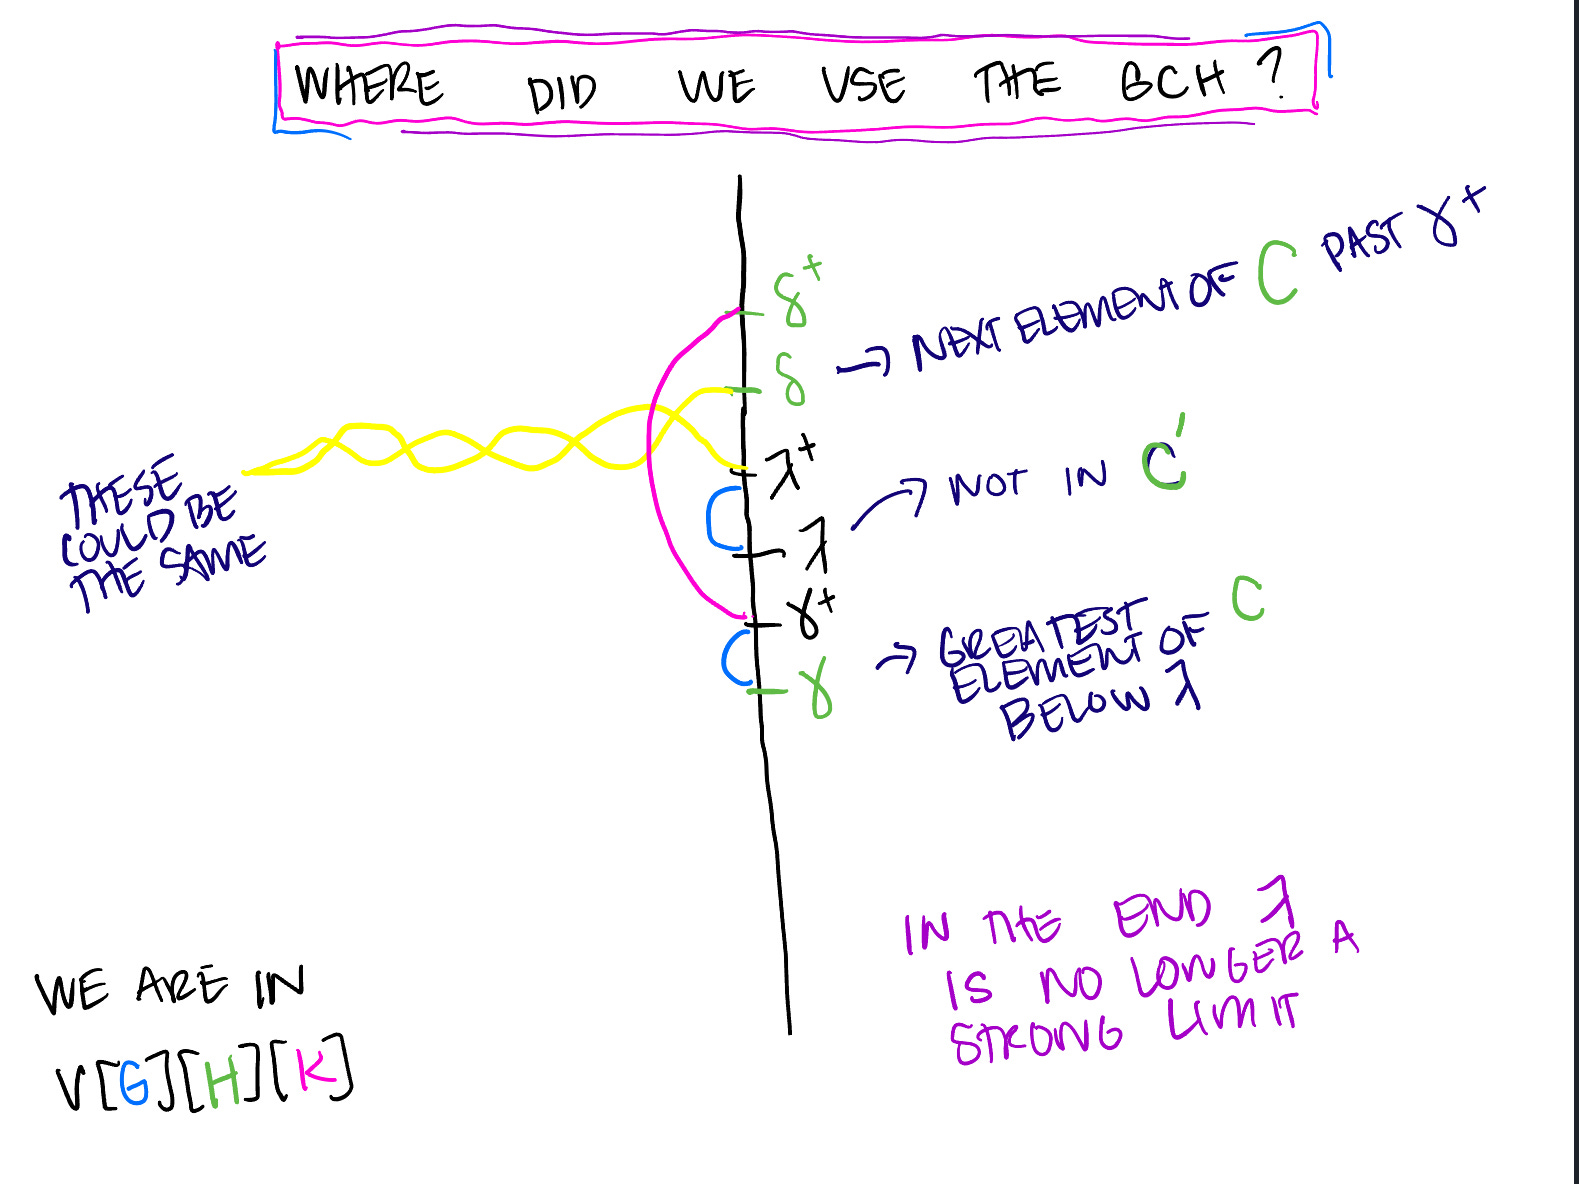 WHERE DID WE USE THE GCH ?
δ+
δ → NEXT ELEMENT OF C PAST γ+
λ+
λ → NOT IN C'
γ+
γ → GREATEST
ELEMENT OF C
BELOW λ
THESE
COULD BE
THE SAME
IN THE END λ
IS NO LONGER A
STRONG LIMIT
WE ARE IN
V[G][H][K]